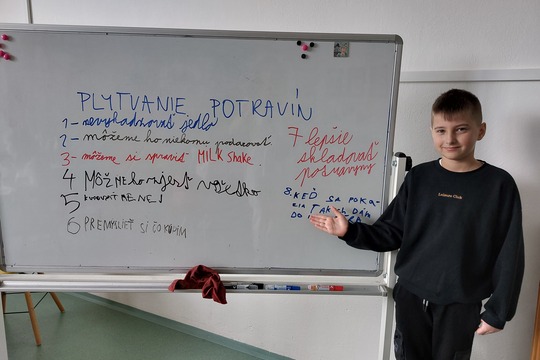 PLYTVANIE POTRAVÍN
1- nevyhadzovať jedlo
2- môžeme ho niekomu podarovať
3- môžeme si spraviť MILK Shake.
4 MÔŽME ho zjesť všetko
5 KUPOVAŤ MENEJ
6 PREMYSLIEŤ SI ČO KÚPIM
7 lepšie
skladovať
potraviny
8. KEĎ SA POKA-
ZIA DÁM
DO